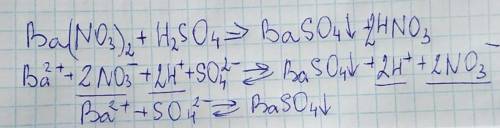 Ba(NO₃)₂ + H₂SO₄ ⇒ BaSO₄↓ + 2HNO₃
Ba²⁺ + 2NO₃⁻ + 2H⁺ + SO₄²⁻ ⇄ BaSO₄↓ + 2H⁺ + 2NO₃⁻
Ba²⁺ + SO₄²⁻ ⇄ BaSO₄↓